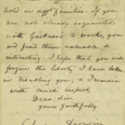 hold in
are not already acquainted
with Gartner's 2 works, you
will find them valuable &
interesting. I hope that you will
forgive the liberty I have taken
in troubling you, & I remain
with much respect
Dear Sir
yours faithfully